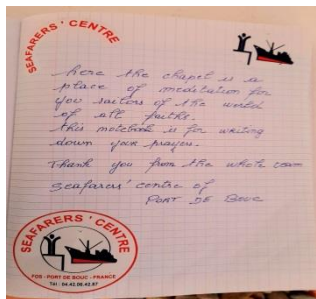 SEAFARERS' CENTRE
here the chapel is a
place of meditation for
you sailors of the world
of all faiths.
this notebook is for writing
down your prayers.
Thank you from the whole team
Seafarers' centre of
PORT DE BOUC
SEAFARERS' CENTRE
FOS - PORT DE BOUC - FRANCE
Tél : 04.42.06.42.87